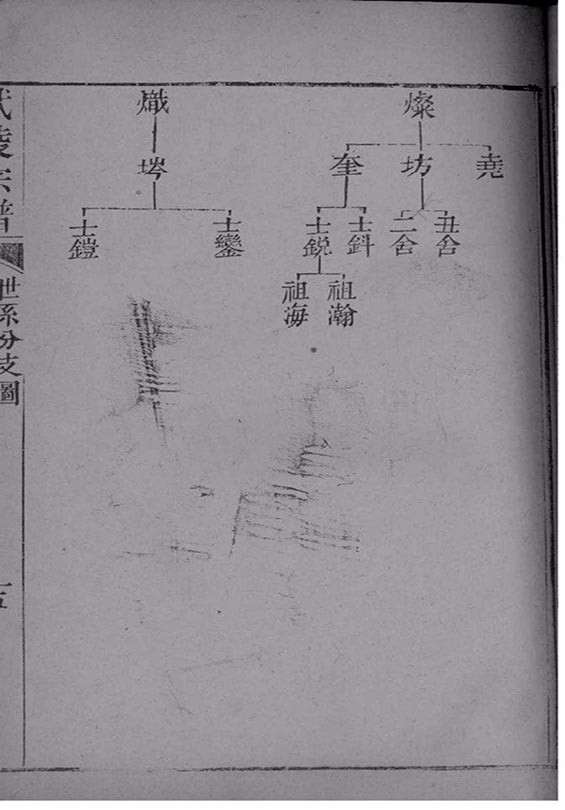 燦
堯
坊
奎
丑舍
二舍
士鈄
士銳
祖瀚
祖海
熾
埁
士鑾
士鎧
武陵宗譜
世系分支圖